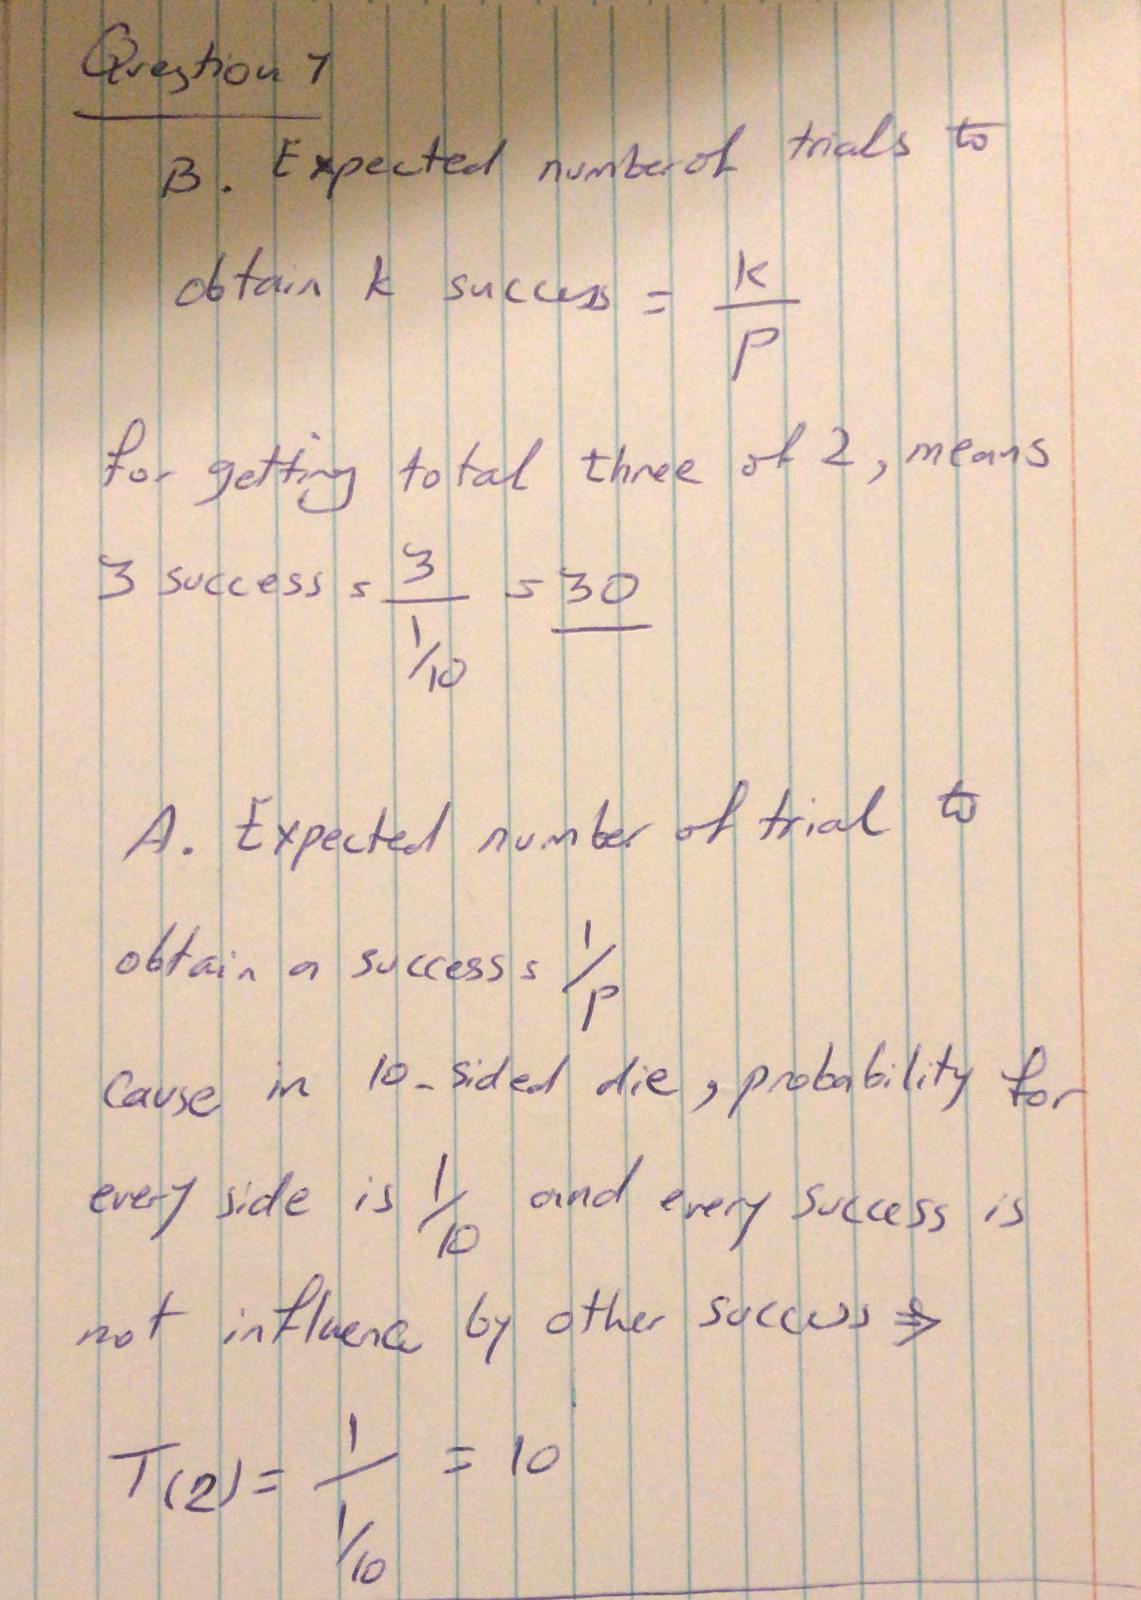 Question 7
B. Expected number of trials to
obtain k success = K/P
for getting total three of 2, means
3 success = 3/(1/10) = 30
A. Expected number of trial to
obtain a success = 1/p
Cause in 10-sided die, probability for
every side is 1/10 and every success is
not influence by other success ⇒
T(2) = 1/(1/10) = 10